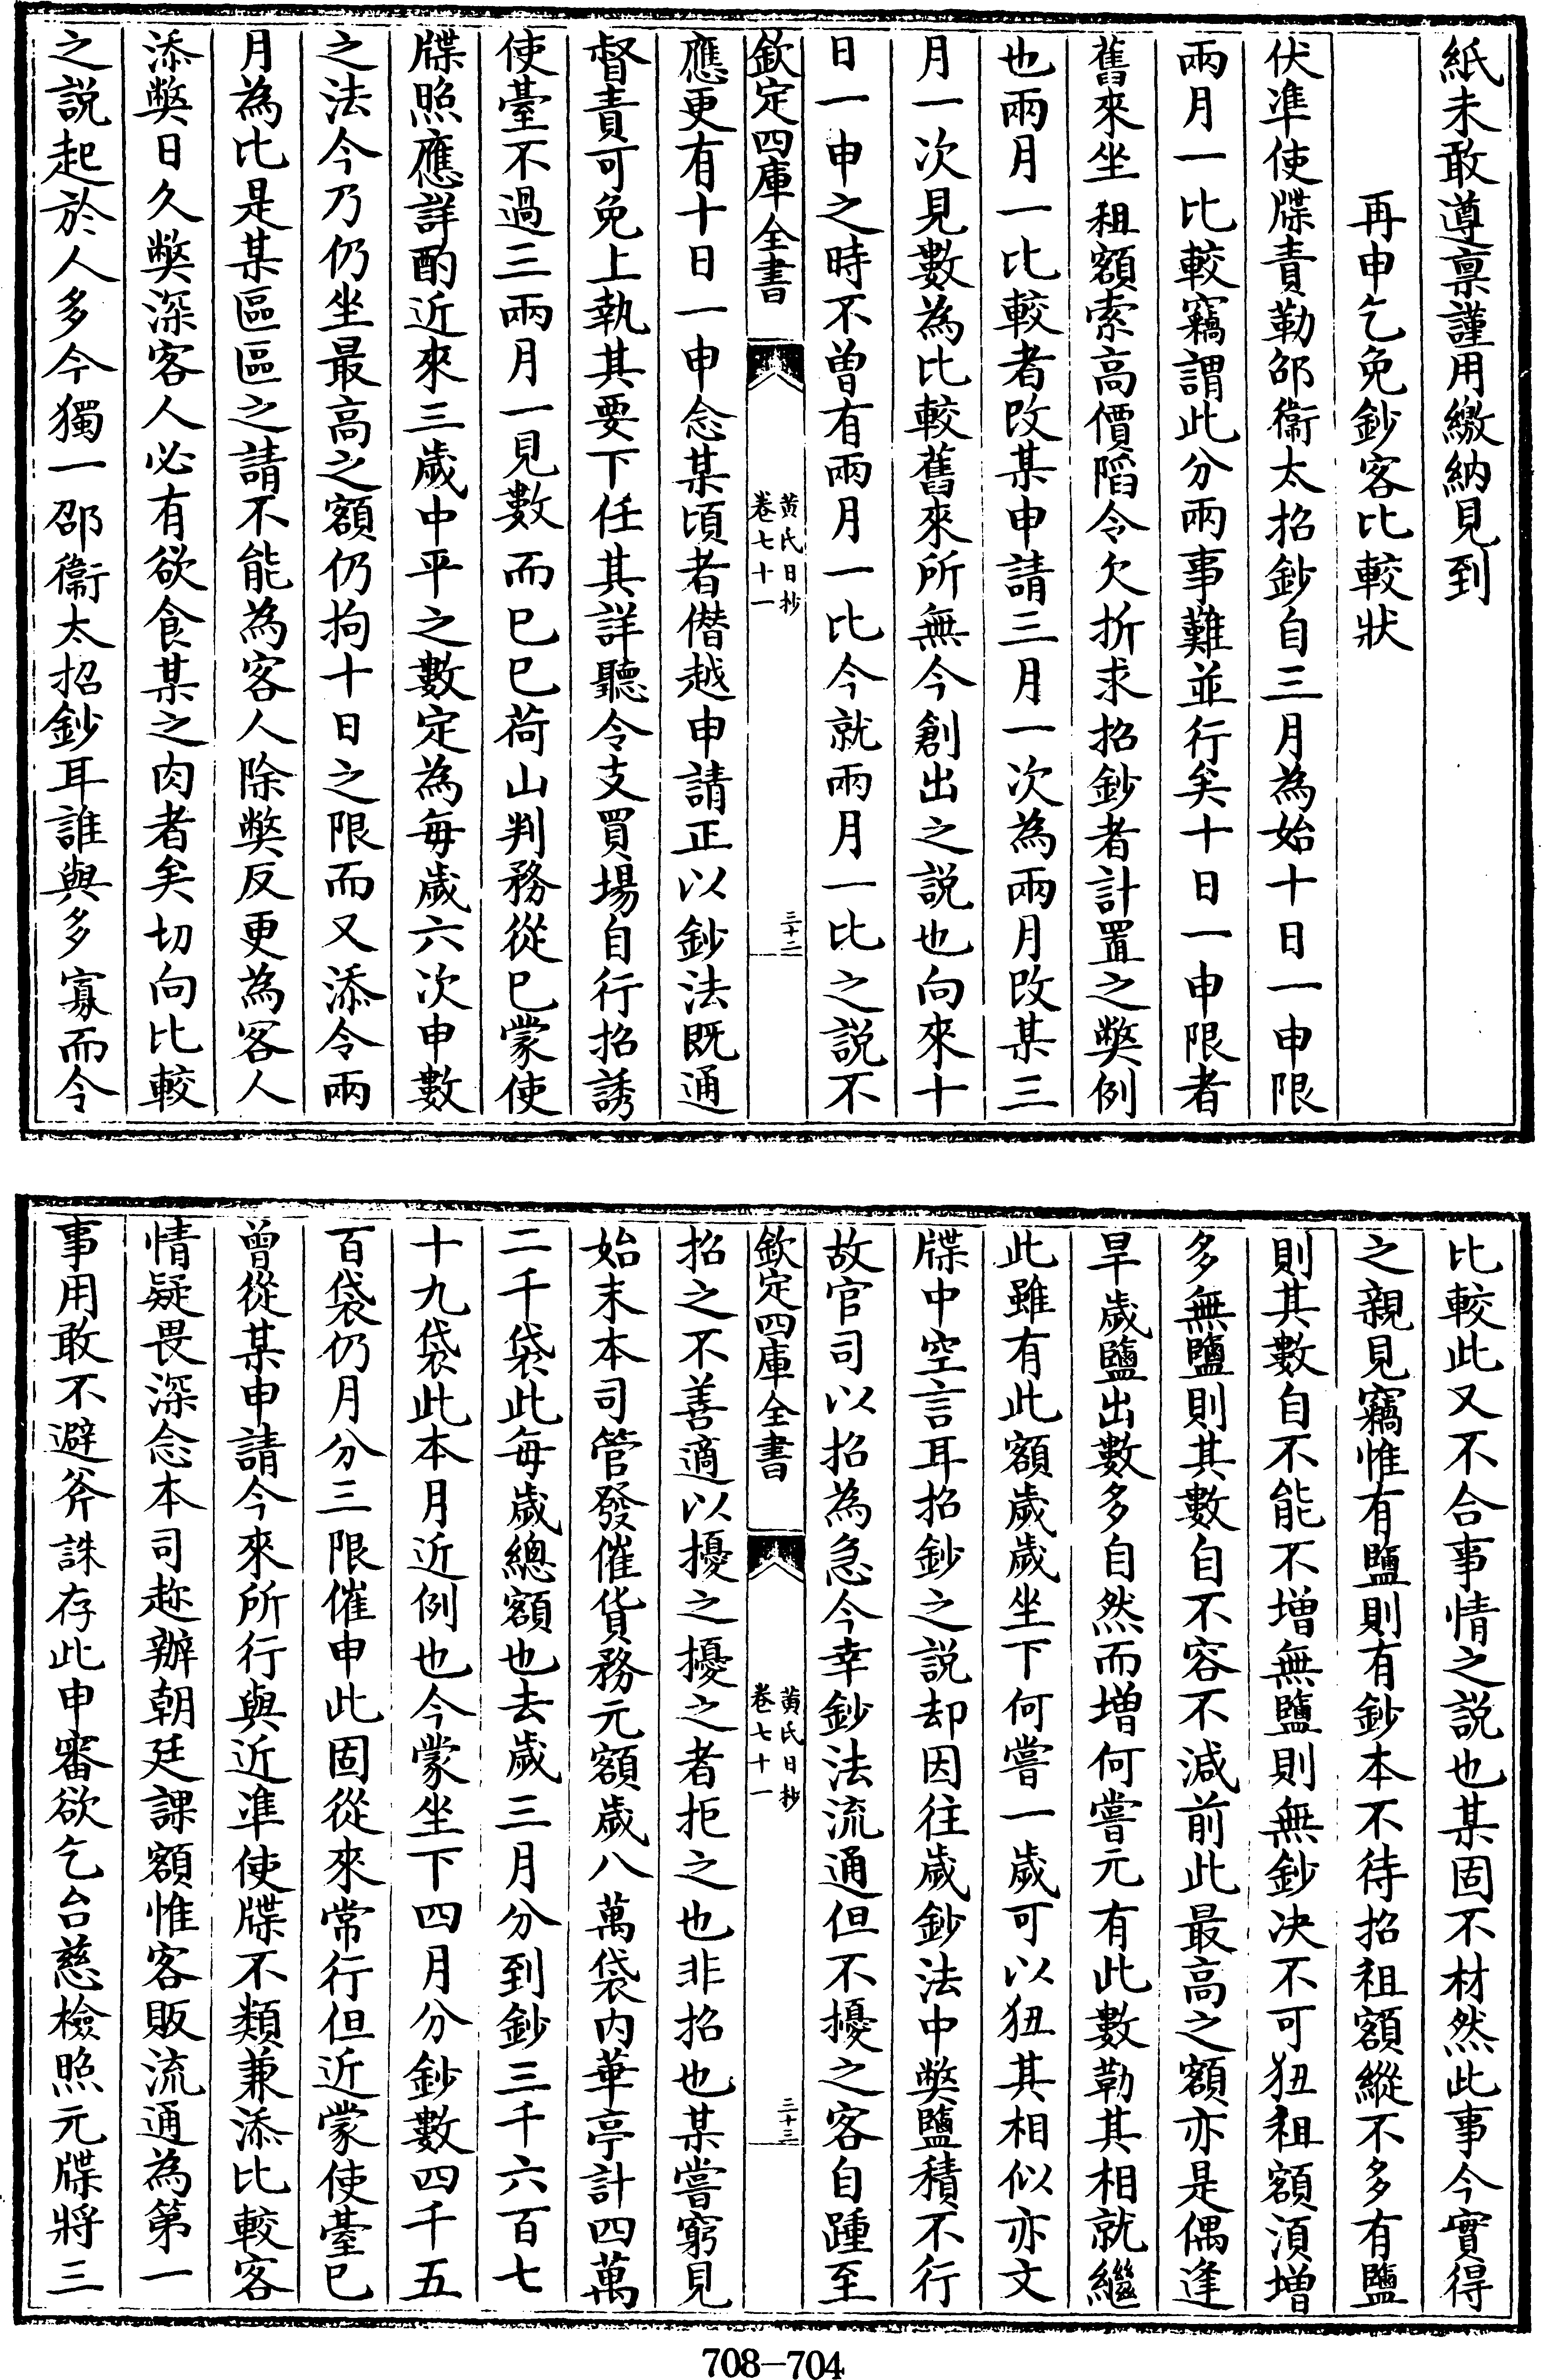 紙未敢遵禀謹用繳納見到
再申乞免鈔客比較狀
伏準使牒責勒邵衞太招鈔自三月為始十日一申限
兩月一比較竊謂此分兩事難並行矣十日一申限者
舊來坐租額索高價陷令欠折求招鈔者計置之弊例
也兩月一比較者改某申請三月一次為兩月改某三
月一次見數為比較舊來所無今創出之説也向來十
日一申之時不曽有兩月一比今就兩月一比之説不
欽定四庫全書
黄氏日抄
卷七十一
三十二
應更有十日一申念某頃者僭越申請正以鈔法既通
督責可免上執其要下任其詳聽令支買場自行招誘
使臺不過三兩月一見數而已已荷山判務從已蒙使
牒照應詳酌近來三歲中平之數定為毎歲六次申數
之法今乃仍坐最高之額仍拘十日之限而又添令兩
月為比是某區區之請不能為客人除弊反更為客人
添弊日久弊深客人必有欲食某之肉者矣切向比較
之説起於人多今獨一邵衞太招鈔耳誰與多寡而令
比較此又不合事情之説也某固不材然此事今實得
之親見竊惟有鹽則有鈔本不待招租額縱不多有鹽
則其數自不能不增無鹽則無鈔决不可狃租額湏增
多無鹽則其數自不容不減前此最高之額亦是偶逢
旱歲鹽出數多自然而増何嘗元有此數勒其相就繼
此雖有此額歲歲坐下何嘗一歲可以狃其相似亦文
牒中空言耳招鈔之説却因往歲鈔法中弊鹽積不行
故官司以招為急今幸鈔法流通但不擾之客自踵至
欽定四庫全書
黄氏日抄
卷七十一
三十三
招之不善適以擾之擾之者拒之也非招也某嘗窮見
始末本司管發催貨務元額歲八萬袋内華亭計四萬
二千袋此每歲總額也去歲三月分到鈔三千六百七
十九袋此本月近例也今蒙坐下四月分鈔數四千五
百袋仍月分三限催申此固從來常行但近蒙使臺已
曾從某申請今來所行與近準使牒不類兼添比較客
情疑畏深念本司趂辦朝廷課額惟客販流通為第一
事用敢不避斧誅存此申審欲乞台慈檢照元牒將三
708—704